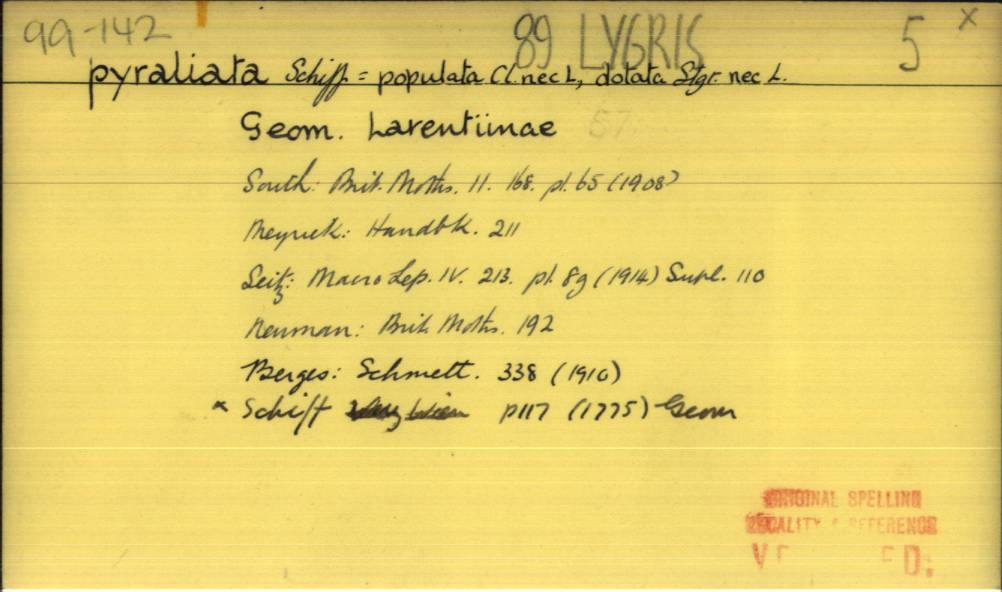 99-142 89 LYGRIS 5 x
pyraliata Schiff. = populata Cl. nec L, dotata Stgr. nec L.
Geom. Larentiinae 57.
South: Brit. Moths. II. 168. pl. 65 (1908)
Meyrick: Handbk. 211
Seitz: Macro Lep. IV. 213. pl. 8g (1914) Supl. 110
Newman: Brit Moths. 192
Berges: Schmett. 338 (1910)
x Schiff p117 (1775) Geom
ORIGINAL SPELLING
LOCALITY & REFERENCE